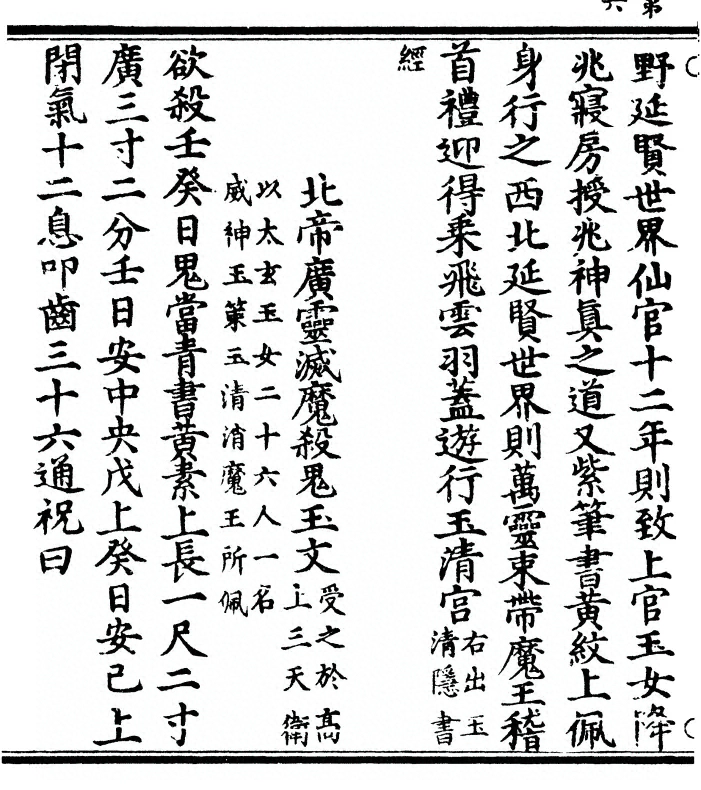 野延賢世界仙官十二年則致上官玉女降
兆寢房授兆神真之道又紫筆書黃紋上佩
身行之西北延賢世界則萬靈束帶魔王稽
首禮迎得乗飛雲羽蓋遊行玉清宮右出玉清隱書
經
北帝廣靈滅魔殺鬼玉文受之於高上三天衛
以太玄玉女二十六人一名
威神玉策玉清消魔王所佩
欲殺壬癸日鬼當青書黃素上長一尺二寸
廣三寸二分壬日安中央戊上癸日安己上
閉氣十二息叩齒三十六通祝曰